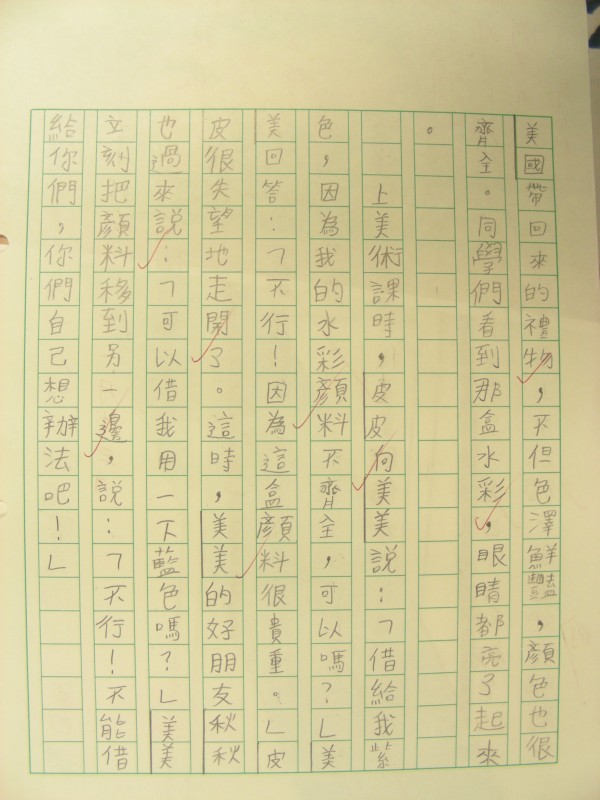 美國帶回來的禮物，不但色澤鮮豔，顏色也很
齊全。同學們看到那盒水彩，眼睛都亮了起來
。
上美術課時，皮皮向美美說：「借給我紫
色，因為我的水彩顏料不齊全，可以嗎？」美
美回答：「不行！因為這盒顏料很貴重。」皮
皮很失望地走開了。這時，美美的好朋友秋秋
也過來說：「可以借我用一下藍色嗎？」美美
立刻把顏料移到另一邊，說：「不行！不能借
給你們，你們自己想辦法吧！」